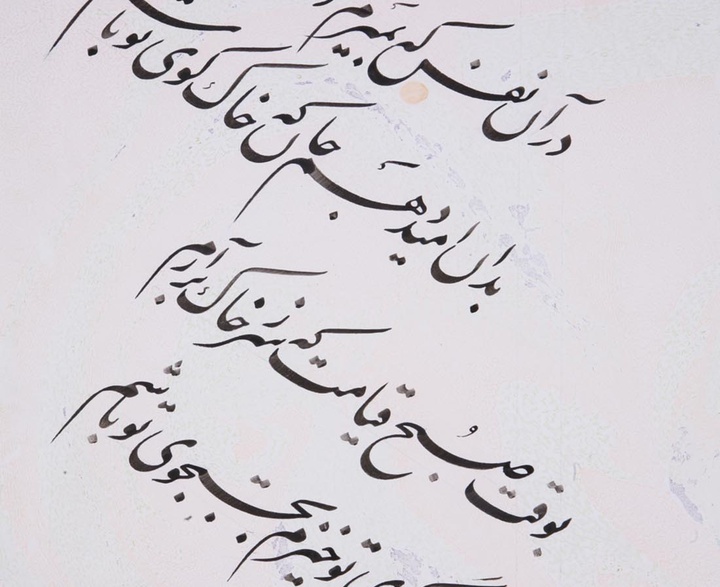 در آن نفس که بمیرم
بدان امید دهم جان که خاک کوی تو باشم
بوقت صبح قیامت که سر ز خاک برآرم
تو خیزم بجستجوی تو باشم